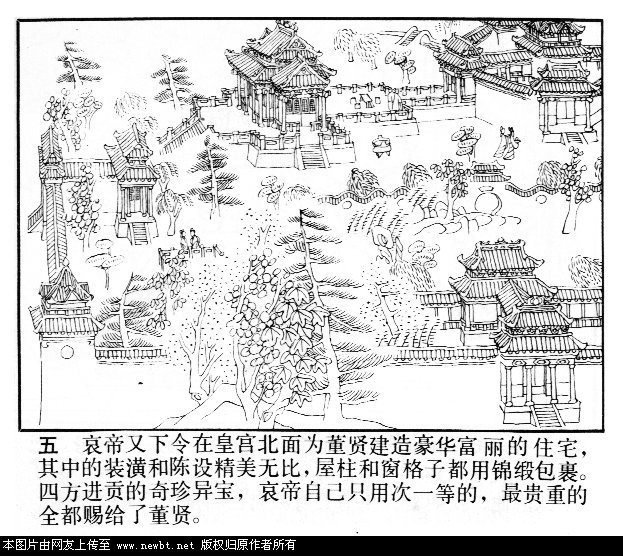 五 哀帝又下令在皇宫北面为董贤建造豪华富丽的住宅，
其中的装潢和陈设精美无比，屋柱和窗格子都用锦缎包裹。
四方进贡的奇珍异宝，哀帝自己只用次一等的，最贵重的
全都赐给了董贤。
本图片由网友上传至 www.newbt.net 版权归原作者所有